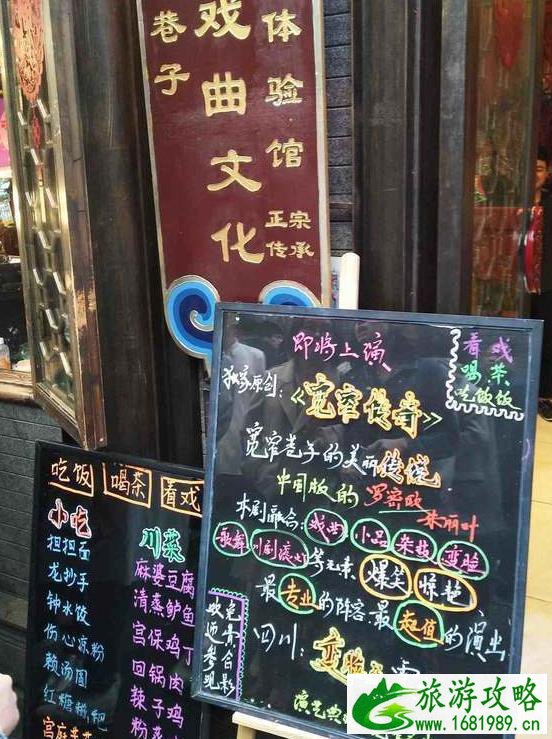 巷子
戏曲文化
体验馆
正宗
传承
即将上演
看戏
喝茶
吃饭饭
独家原创:
《宽窄传奇》
宽窄巷子的美丽传说
中国版的罗密欧
朱丽叶
本剧融合:戏曲 小品 杂技 变脸
歌舞 川剧滚灯 等元素 爆笑 惊艳
最专业的阵容最超值的演出
四川:变脸
演艺典
欢迎参观
免费合影
吃饭 喝茶 看戏
小吃
担担面
龙抄手
钟水饺
伤心凉粉
赖汤圆
红糖糍粑
宫庭
川菜
麻婆豆腐
清蒸鲈鱼
宫保鸡丁
回锅肉
辣子鸡
粉蒸
旅游攻略
www.1681989.cn